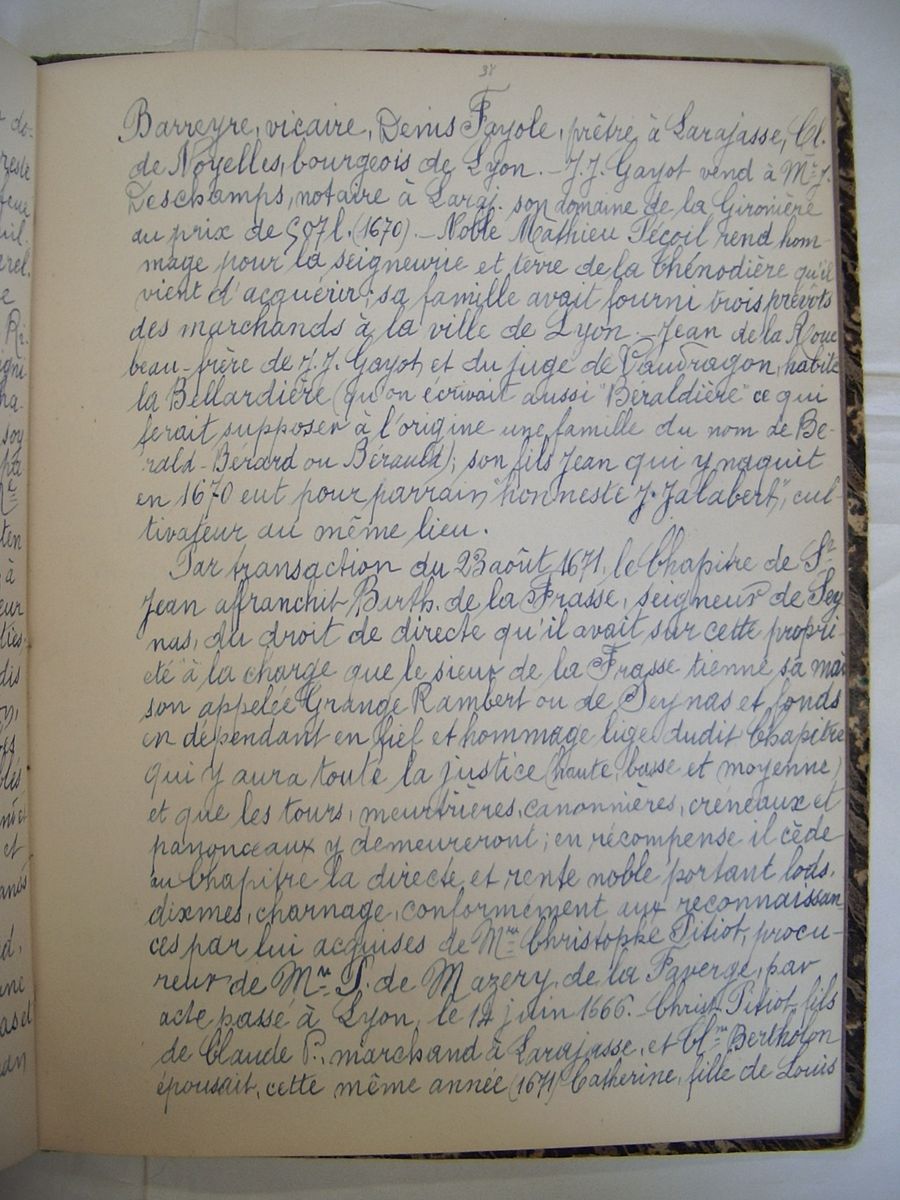 38
Barreyre, vicaire, Denis Fayole, prêtre à Larajasse, Cl.
de Noyelles, bourgeois de Lyon. _ J.J. Gayot vend à Mre J.
Deschamps, notaire à Laraj. son domaine de la Gironière
au prix de 507 l. (1670). _ Noble Mathieu Pécoil rend hom-
mage pour la seigneurie et terre de la Chénodière qu'il
vient d'acquérir; sa famille avait fourni trois prévôts
des marchands à la ville de Lyon. _ Jean de la Roue
beau-frère de J.J. Gayot, et du juge de Vaudragon, habite
la Bellardière (qu'on écrivait aussi "Béraldière" ce qui
ferait supposer à l'origine une famille du nom de Be-
rald-Berard ou Berauld); son fils Jean qui y naquit
en 1670 eut pour parrain "honneste J. Jalabert", cul-
tivateur au même lieu.
Par transaction du 23 août 1671, le Chapitre de St
Jean affranchit Barth. de la Frasse, seigneur de Sey
nas, du droit de directe qu'il avait sur cette propri-
été "à la charge que le sieur de la Frasse tienne sa mai
son appelée Grange Rambert ou de Seynas et fonds
en dépendant en fief et hommage lige dudit Chapitre
qui y aura toute la justice (haute, basse et moyenne)
et que les tours, meurtrières, canonnières, créneaux et
panonceaux y demeureront; en récompense il cède
au Chapitre la directe et rente noble portant lods,
dixmes, charnage, conformément aux reconnaissan-
ces par lui acquises de Mre Christophe Pitiot, procu-
reur de Mre P. de Mazery, de la Faverge, par
acte passé à Lyon, le 14 juin 1666. _ Christ. Pitiot, fils
de Claude P., marchand à Larajasse, et Cl.ne Bertholon
épousait, cette même année (1671) Catherine, fille de Louis